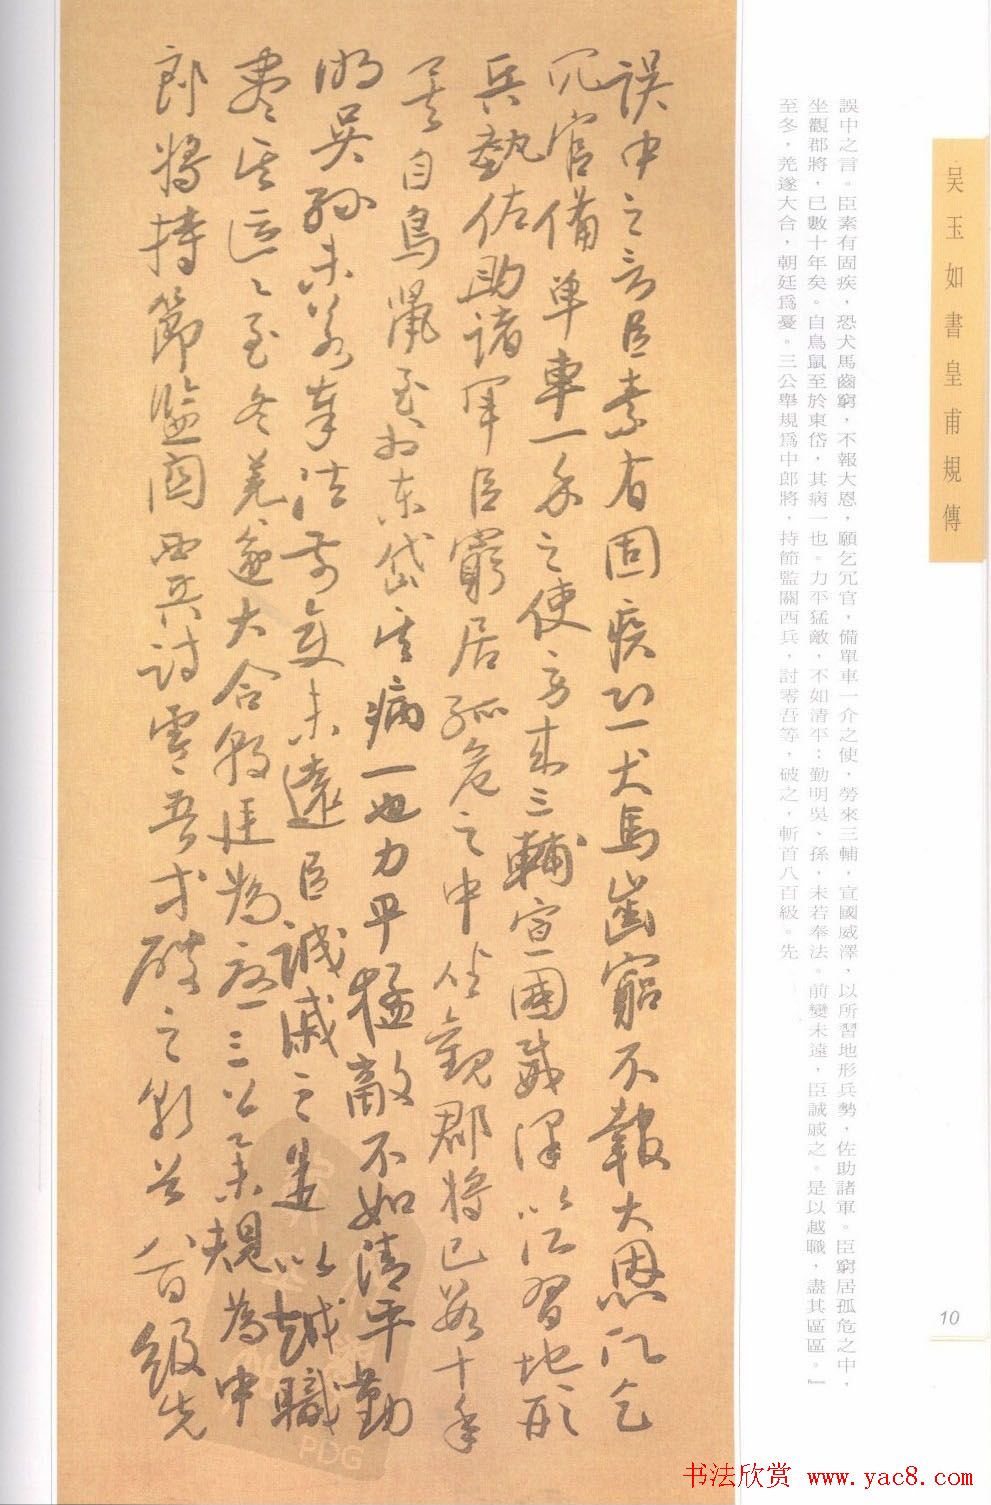 吳玉如書皇甫規傳
誤中之言。臣素有固疾，恐犬馬齒窮，不報大恩，願乞冗官，備單車一介之使，勞來三輔，宣國威澤，以所習地形兵勢，佐助諸軍。臣窮居孤危之中，
坐觀郡將，已數十年矣。自鳥鼠至於東岱，其病一也。力平猛敵，不如清平；勤明吳、孫，未若奉法。前變未遠，臣誠戚之。是以越職，盡其區區。」
至冬，羌遂大合，朝廷爲憂。三公舉規爲中郎將，持節監關西兵，討零吾等，破之，斬首八百級。先
誤中之言臣素有固疾恐犬馬齒窮不報大恩願乞
冗官備單車一介之使勞來三輔宣國威澤以所習地形
兵勢佐助諸軍臣窮居孤危之中坐觀郡將已數十年
矣自鳥鼠至於東岱其病一也力平猛敵不如清平勤
明吳孫未若奉法前變未遠臣誠戚之是以越職
盡其區區至冬羌遂大合朝廷為憂三公舉規為中
郎將持節監關西兵討零吾等破之斬首八百級先
10
PDG
书法欣赏 www.yac8.com